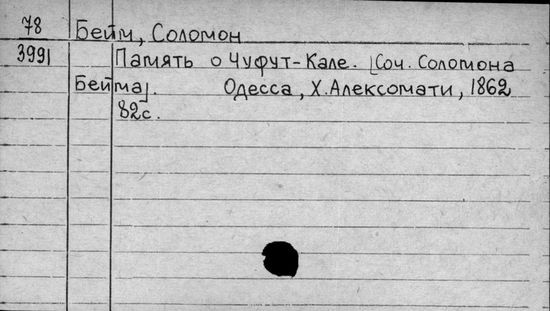 78 Бейм, Соломон
3991 Память о Чуфут-Кале. [Соч. Соломона
Бейма]. Одесса, Х. Алексомати, 1862
82с.